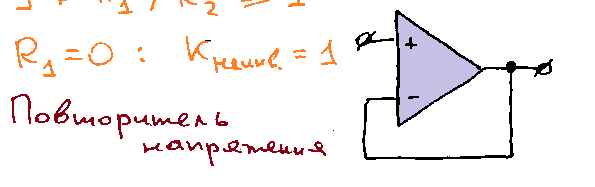 R₁=0 : Kнеинв.=1
Повторитель
напряжения
+
-